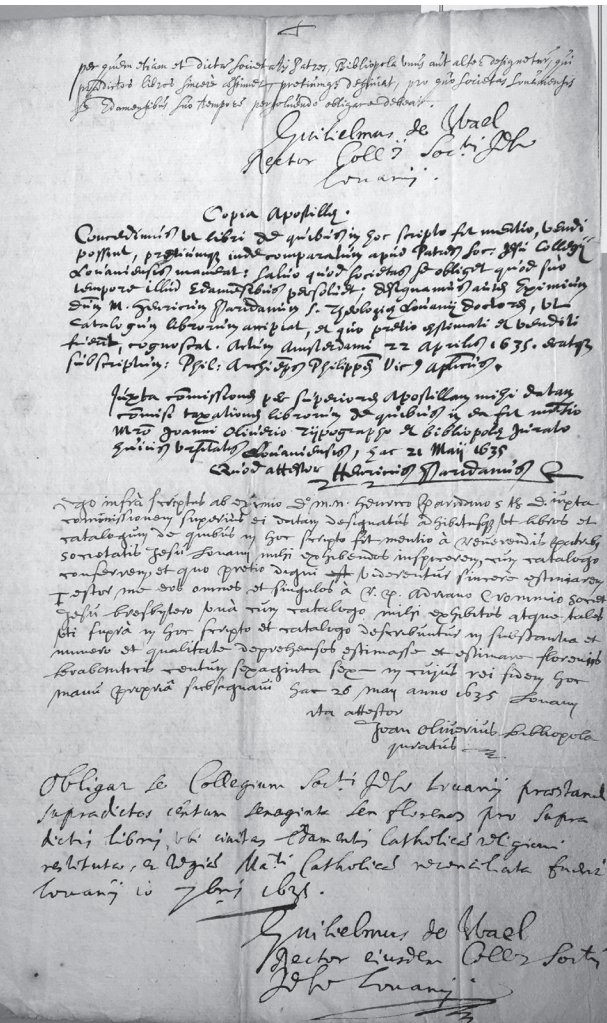 per quem etiam et dictae Societatis Patres, Bibliopola unus aut alter designetur, qui
praedictos libros sincere aestimet, pretiumque definiat, pro quo Societas Lovaniensis
se Edamensibus suo tempore persolvendo obligare debeat.
Guilielmus de Wael
Rector Collii Socti Jesu
Lovanij.
Copia Apostillae.
Concedimus ut libri de quibus in hoc scripto fit mentio, vendi
possint, pretiumque inde comparatum apud Patres Soc. Jesu Collegij
Lovaniensis maneat: salvo quod Societas se obliget quod suo
tempore illud Edamensibus persolvet, designamus autem Eximium
Dum M. Henricum Paridanum S. Theologiae Lovanij doctorem, ut
catalogum librorum accipiat, et quo pretio aestimati et venditi
fuerint, cognoscat. Actum Amsterdami 22 Aprilis 1635. eratque
subscriptum: Phil: Archieps Philippen Vics Aplicus.
Juxta commissionem per superiorem Apostillam mihi datam
commisi taxationem librorum de quibus in ea fit mentio
Mro Joanni Oliverio Typographo et bibliopolae Jurato
huius Unitatis Lovaniensis, hac 21 Maij 1635
Quod attestor Henricus Paridanus
Ego infra scriptus ab eximio Do m.n. Henrico Paridano s th. D. iuxta
commissionem superius ei datam designatus adhibitusque ut libros et
catalogum de quibus in hoc scripto fit mentio à Reverendis patribus
societatis Jesu Lovanij mihi exhibendos inspicerem, cum catalogo
conferrem, et quo pretio digni viderentur sincere estimarem
Testor me eos omnes et singulos à R.p. Adriano Crommio societ
Jesu presbytero unà cum catalogo mihi exhibitos atque tales
uti suprà in hoc scripto et catalogo describuntur in substantia et
numero et qualitate deprehensos estimasse et estimare florenis
brabanticis centum sexaginta sex in cujus rei fidem hoc
manu propriâ subsignavi hac 26 maij anno 1635 Lovanij
ita attestor
Joan Oliverius bibliopola
juratus
Obligat se Collegium Socti Jesu Lovanij praestandi
supradictos centum sexaginta sex florenos pro supra
dictis libris, ubi civitas Edamensis Catholicae religioni
restituta, et Regiae Mati Catholicae reconciliata fuerit
Lovanij 10 7bris 1635.
Guilielmus de Wael
Rector eiusdem Collii Socti
Jesu Lovanij